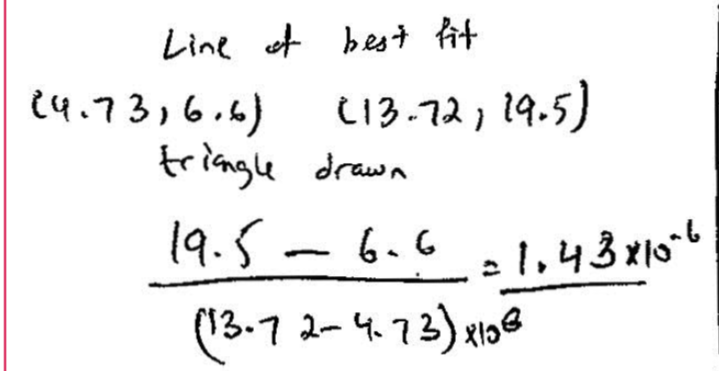 Line of best fit
(4.73, 6.6) (13.72, 19.5)
triangle drawn
19.5 - 6.6 = 1.43 x10^-6
(13.72 - 4.73) x10^6